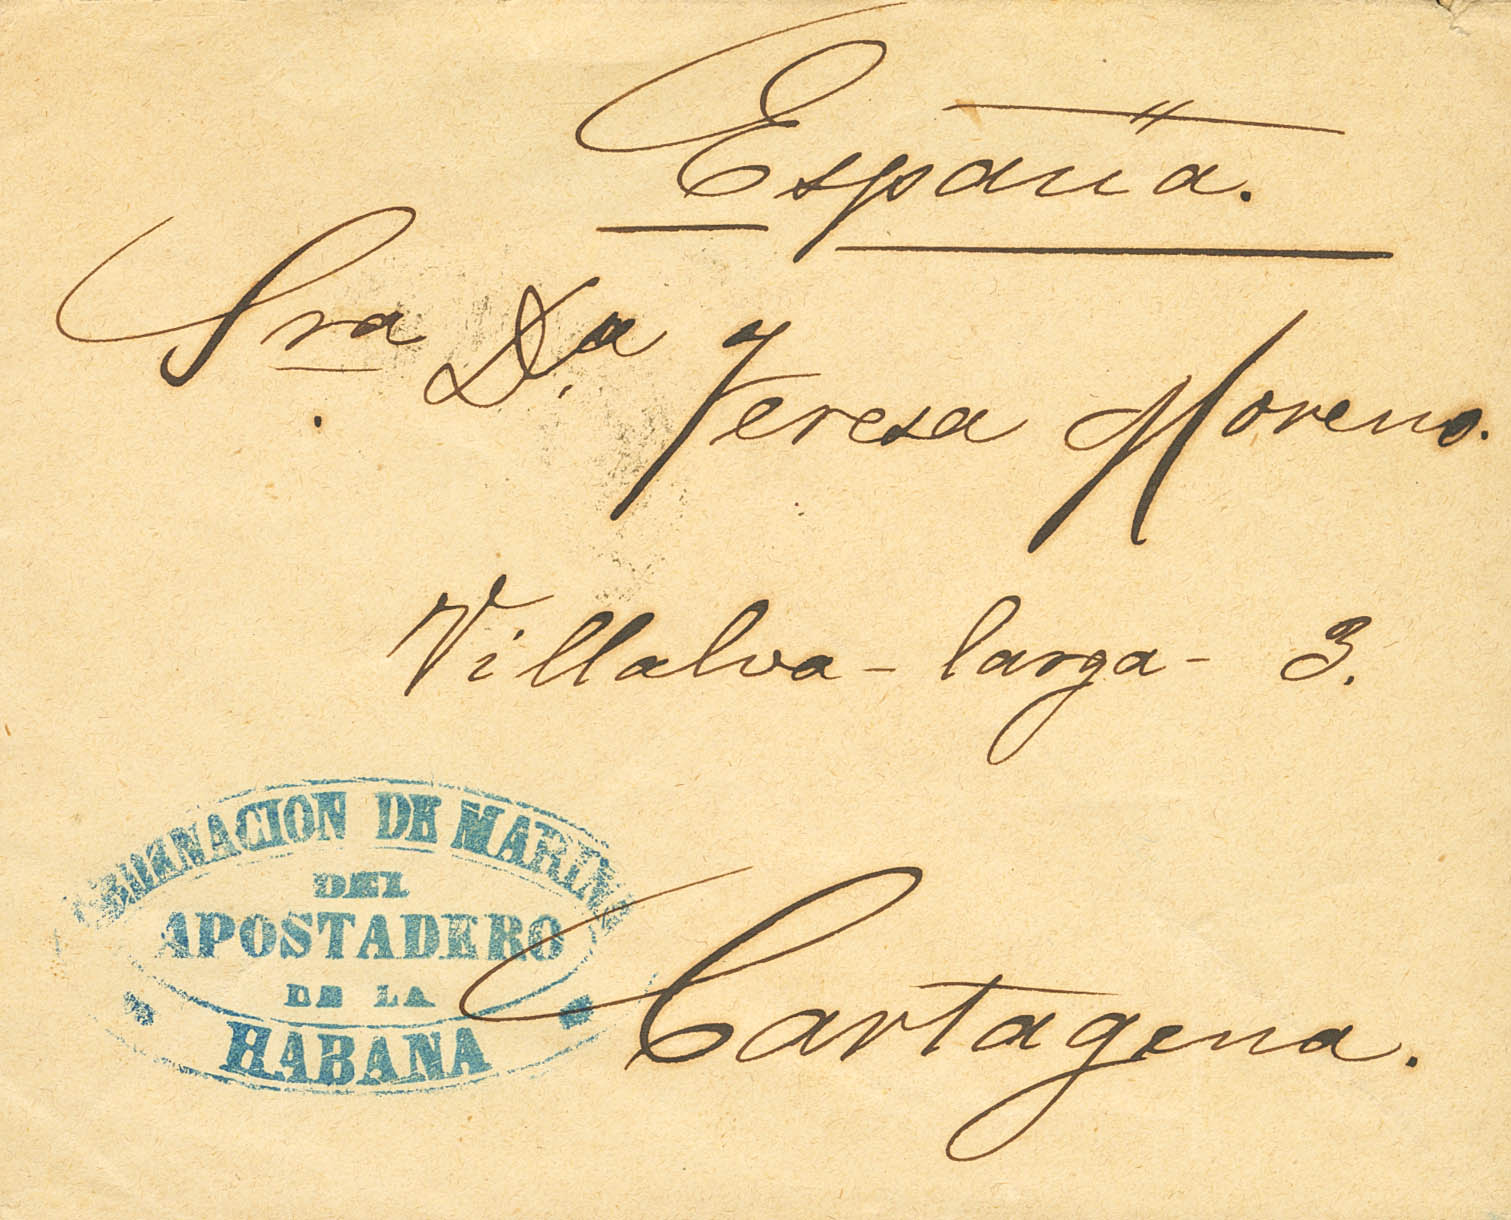 España.
Sra Da Teresa Moreno.
Villalva - larga - 3.
Cartagena.
DE MARINA
DEL
APOSTADERO
DE LA
HABANA